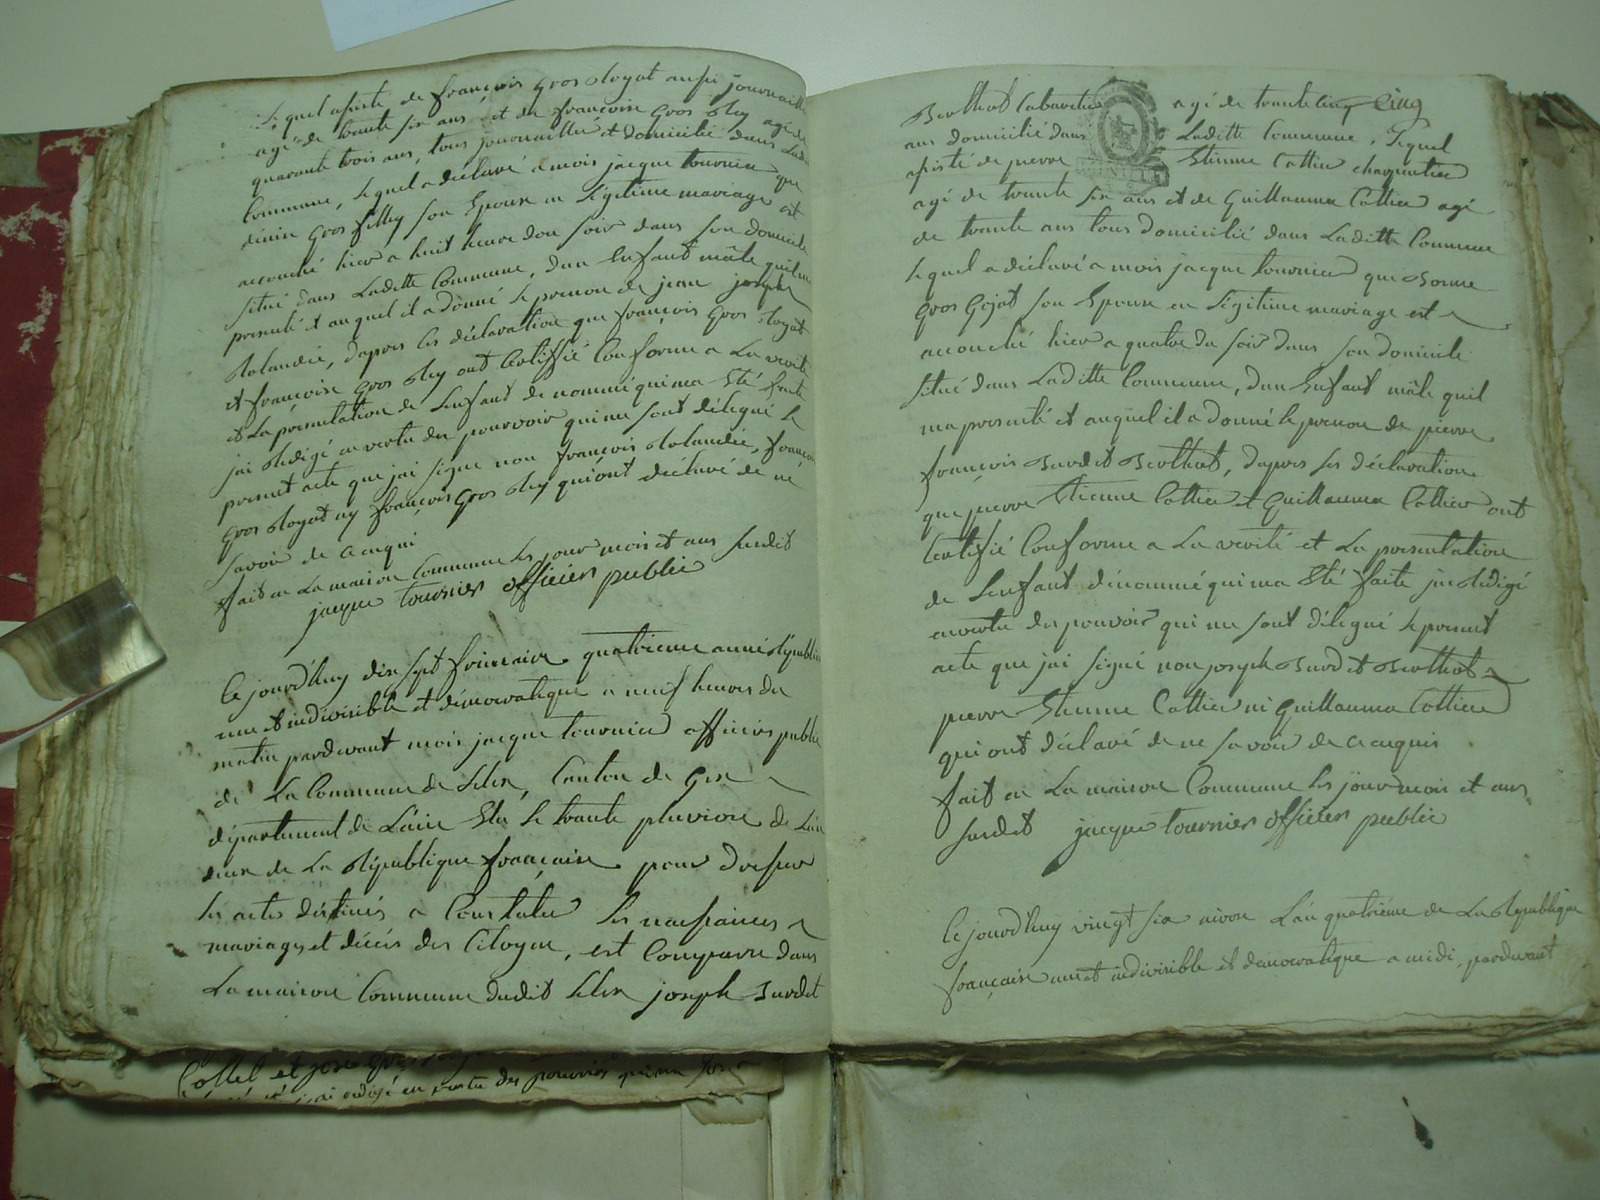 Lequel assisté de françois gros Royat aussi journaillier
agé de trante six ans et de françoise gros Rey agé de
quarante trois ans, tous journaillié et domicilié dans Ladi
Commune, lequel a déclaré a mois jacque tournier que
gros filley son Epouse en légitime mariage est
accouché hier a huit heure dou soir dans son domicile
situé dans Laditte Commune, dun Enfant mâle quil ma
presenté et auquel il a donné le prenon de jean joseph
Rolandée, dapres les déclaration que françois gros Royat
et françoise gros Rey ont Certiffié Conforme a La verité
et La presentation de Lenfant de nommé qui ma Eté faite
jai Redigé en vertu des pourvoir qui me sont délégué le
present acte que jai signe non françois Rolandée, françois
gros Royat ny françois gros Rey qui ont déclaré de ne
savoir de ce acqui
fait en La maison Commune les jour mois et ans susdit
jacque tournier officier public
Ce jourd'huy dix sept frimaire quatrieme année Républi
une et indivisible et démocratique a neuf heures du
matin pardevant mois jacque tournier officier public
de La Commune de Lelex, Canton de Gex
département de Lain Elu le trante pluviose de Lan
deux de La République française pour dresser
les actes déstinés a Constater les naissances
mariages et décés des Citoyen, est Comparu dans
La maison Commune dudit Lelex joseph Burdet
Collet et
redigé en vertu des pouvoirs qui me sont
Berthet Cabaretier agé de trante cinq Cinq
ans domicilié dans Laditte Commune, Lequel
assisté de pierre Etienne Cottier charpentier
agé de trante six ans et de Guillaume Cottier agé
de trante ans tous domicilié dans Laditte Commune
lequel a déclaré a mois jacque tournier que
gros Gojat son Epouse en légitime mariage est
accouché hier a quatre du soir dans son domicile
situé dans Laditte Commune, dun Enfant mâle quil
ma presenté et auquel il a donné le prenon de pierre
françois Burdet Berthet, dapres les déclaration
que pierre Etienne Cottier et Guillaume Cottier ont
Certifié Conforme a La verité et La presentation
de Lenfant dénommé qui ma Eté faite jai Redigé
en vertu des pouvoir qui me sont délégué le present
acte que jai signé non joseph Burdet Berthet
pierre Etienne Cottier ni Guillaume Cottier
qui ont déclaré de ne savoir de ce acquis
fait en La maison Commune les jour mois et ans
susdit jacque tournier officier public
Ce jourd'huy vingt six nivose Lan quatriéme de La République
française une et indivisible et democratique a midi, pardevant